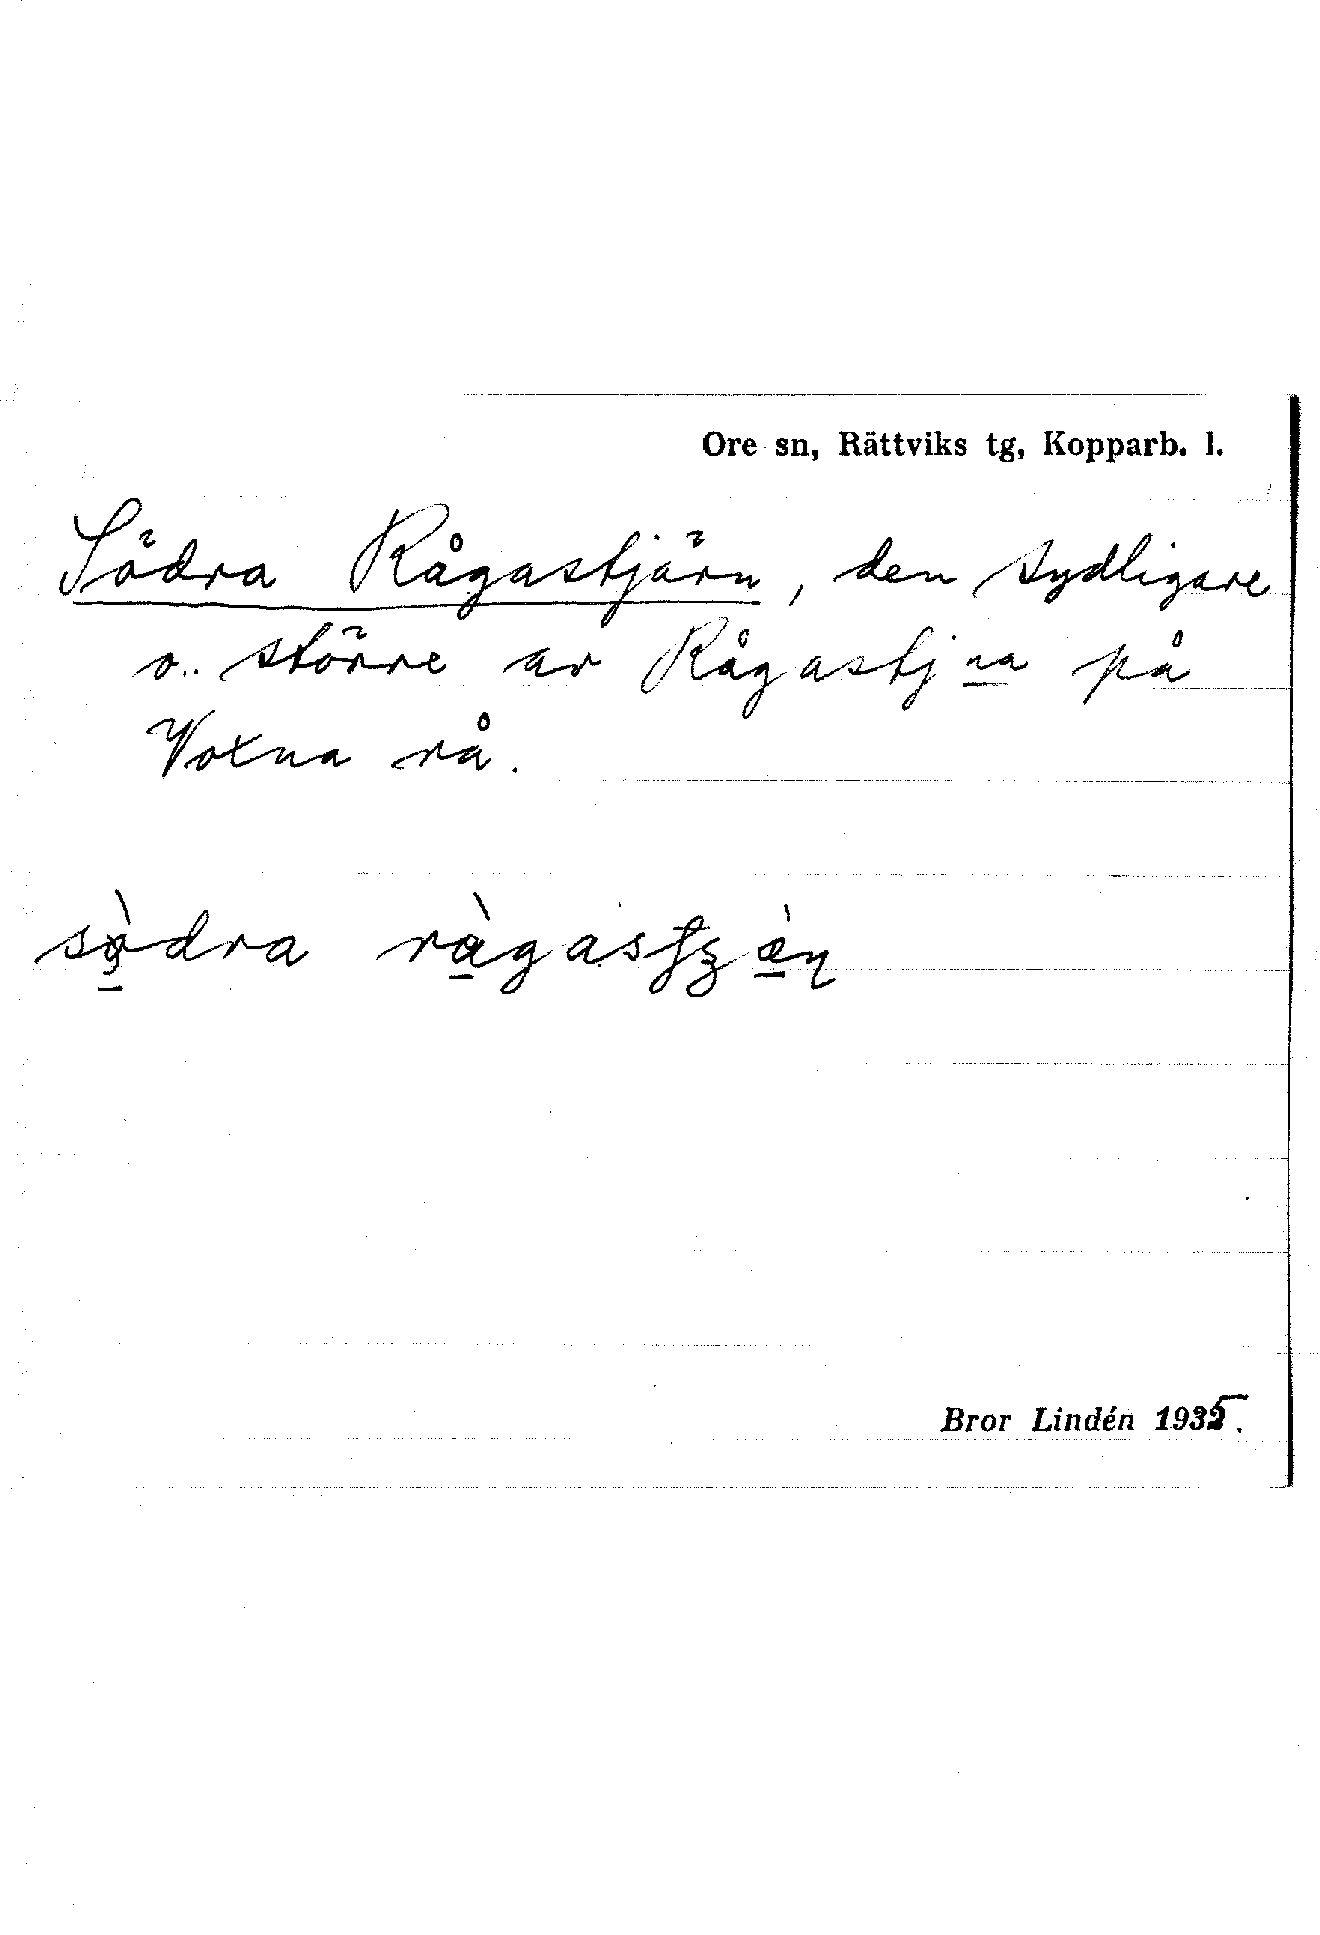 Ore sn, Rättviks tg, Kopparb. l.
Södra Rågastjärn, den sydligare
o. större av Rågastjna på
Voxna rå.
södra
Bror Lindén 1935.